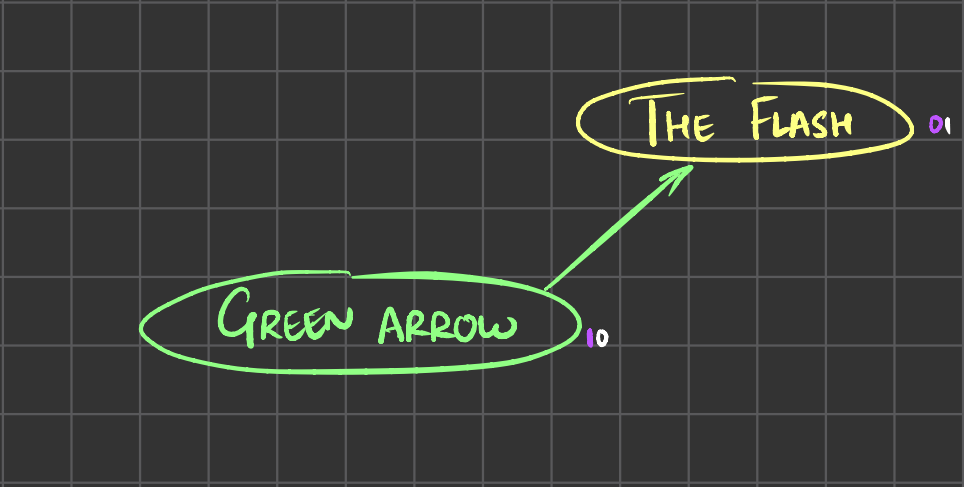 THE FLASH 01
GREEN ARROW 10